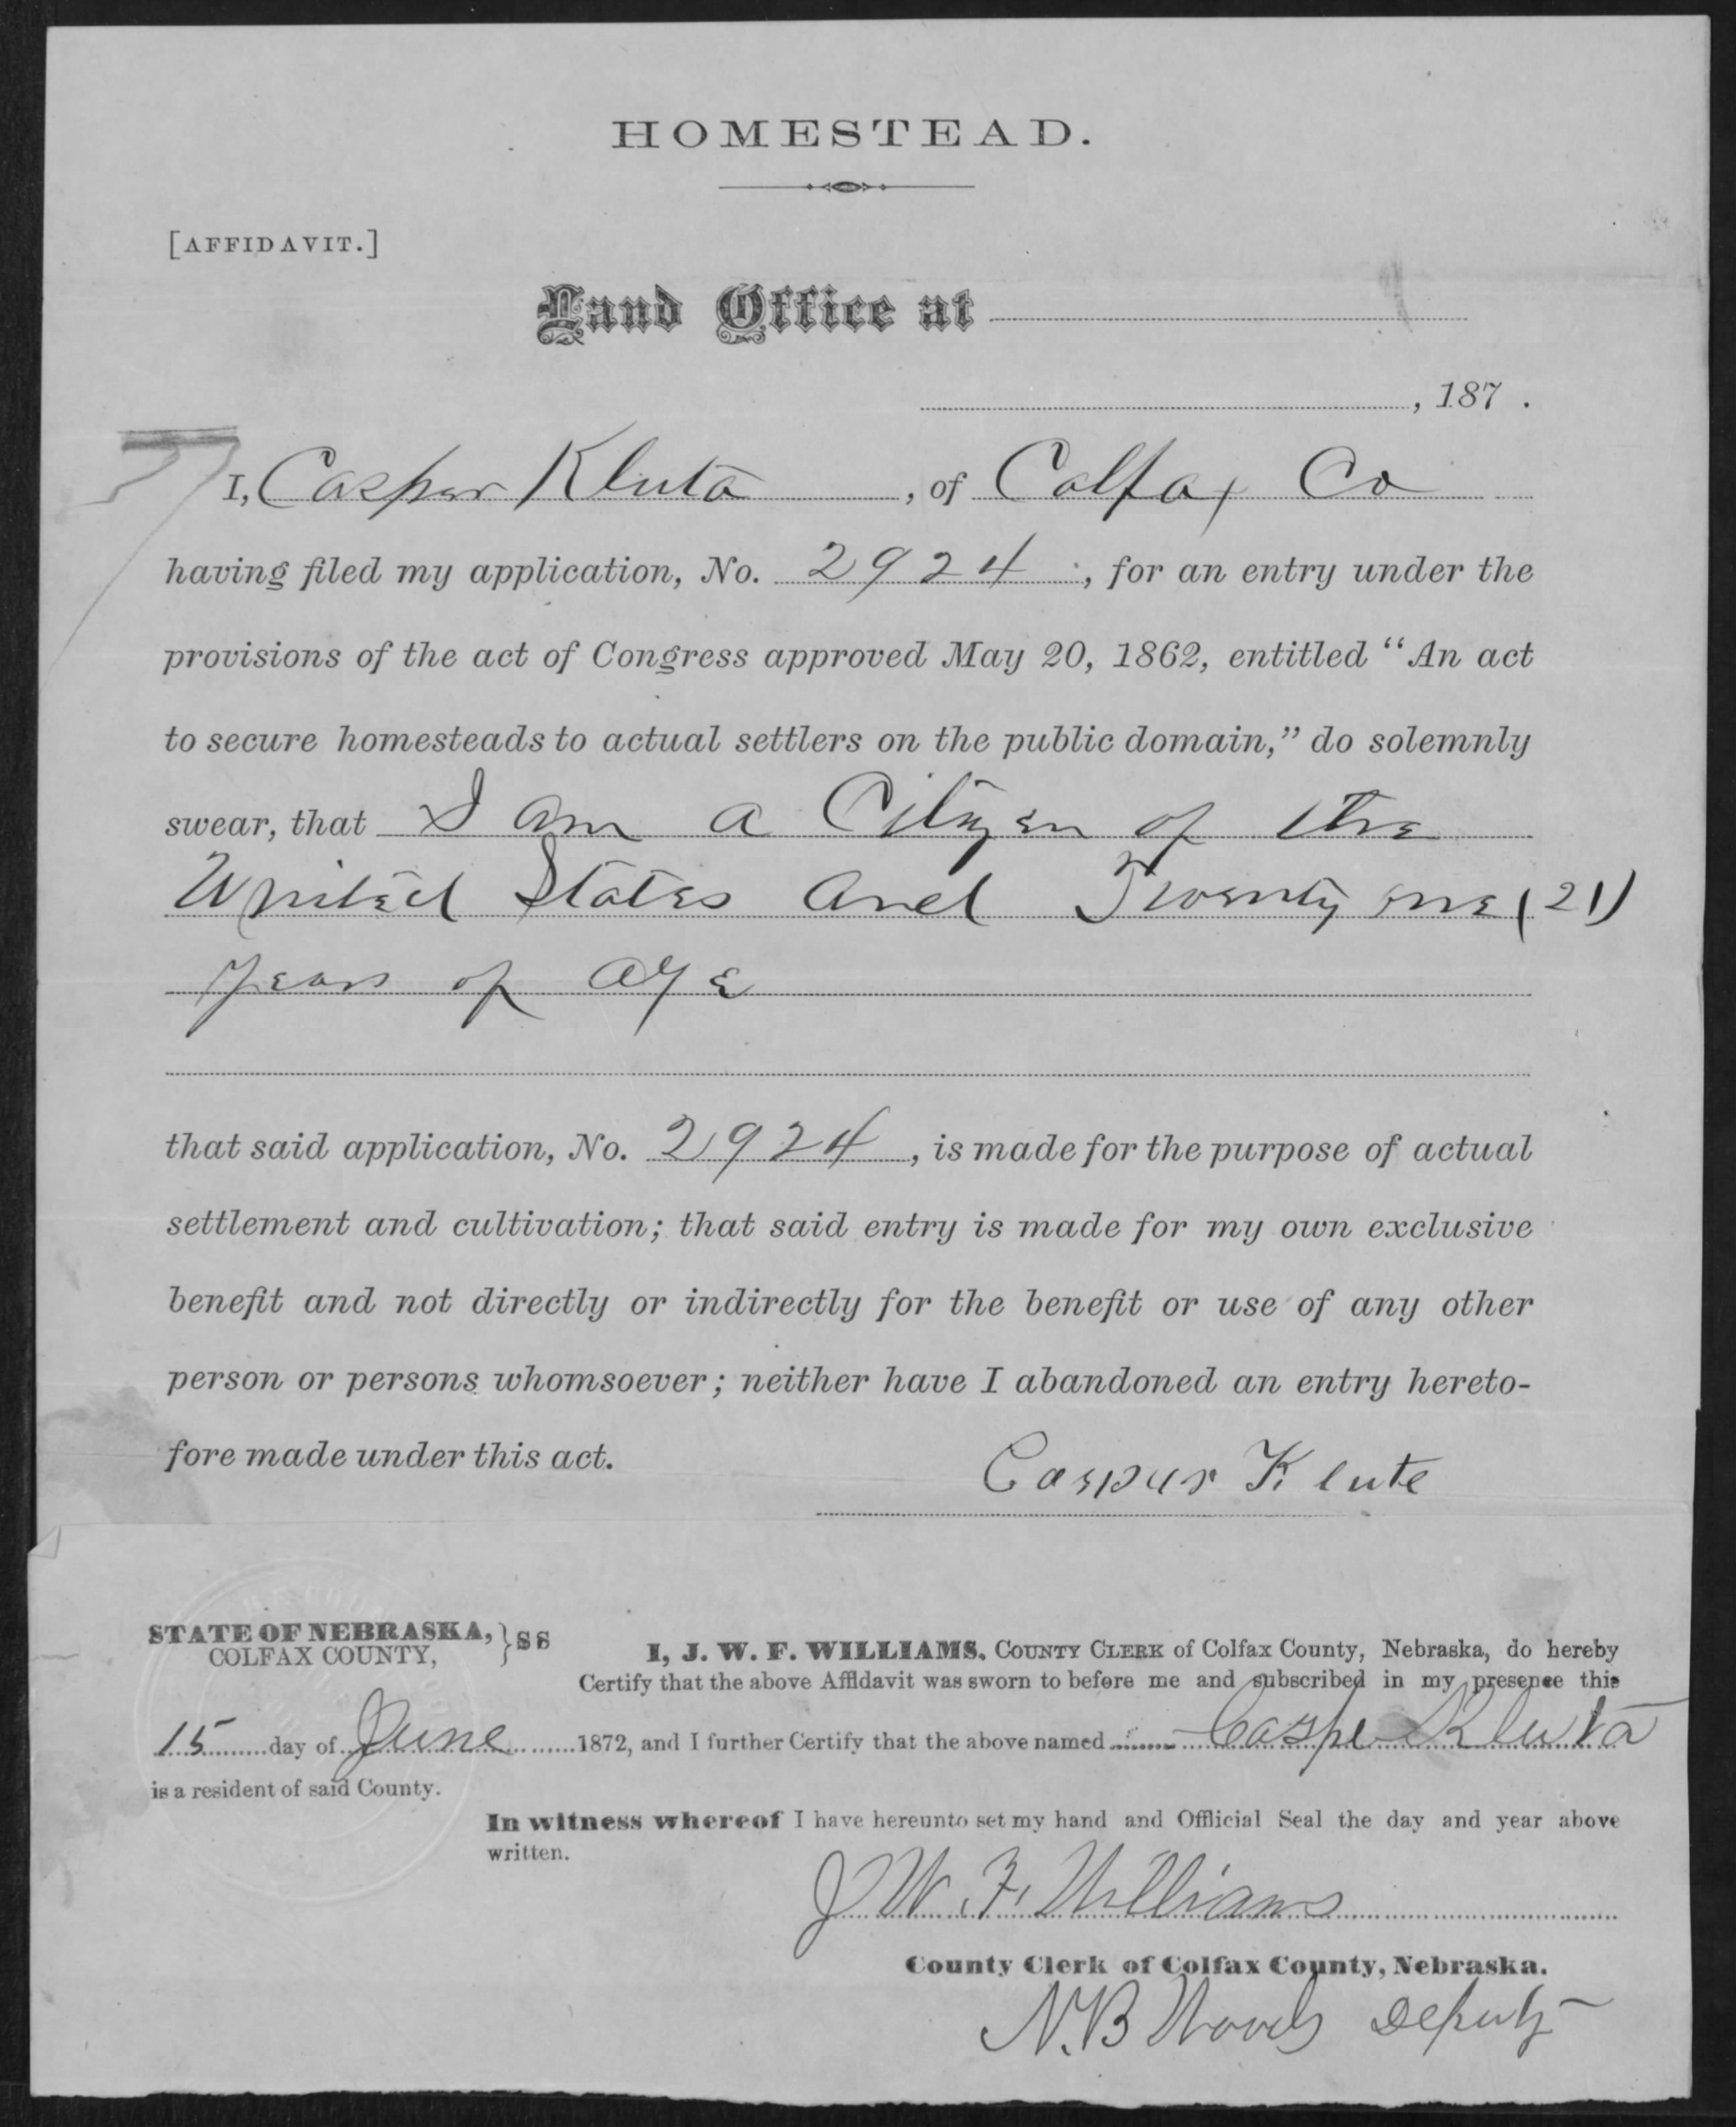 HOMESTEAD.
[AFFIDAVIT.]
Land Office at
, 187 .
I, Casper Kluta , of Colfax Co
having filed my application, No. 2924 , for an entry under the
provisions of the act of Congress approved May 20, 1862, entitled “An act
to secure homesteads to actual settlers on the public domain,” do solemnly
swear, that I am a Citizen of the
United States and Twenty one (21)
years of age
that said application, No. 2924 , is made for the purpose of actual
settlement and cultivation; that said entry is made for my own exclusive
benefit and not directly or indirectly for the benefit or use of any other
person or persons whomsoever; neither have I abandoned an entry hereto-
fore made under this act.
Caspur Klute
STATE OF NEBRASKA, } SS
COLFAX COUNTY,
I, J. W. F. WILLIAMS, COUNTY CLERK of Colfax County, Nebraska, do hereby
Certify that the above Affidavit was sworn to before me and subscribed in my presence this
15 day of June 1872, and I further Certify that the above named Caspe Kluta
is a resident of said County.
In witness whereof I have hereunto set my hand and Offlicial Seal the day and year above
written.
J W. F. Williams
County Clerk of Colfax County, Nebraska.
N.B Woods Deputy